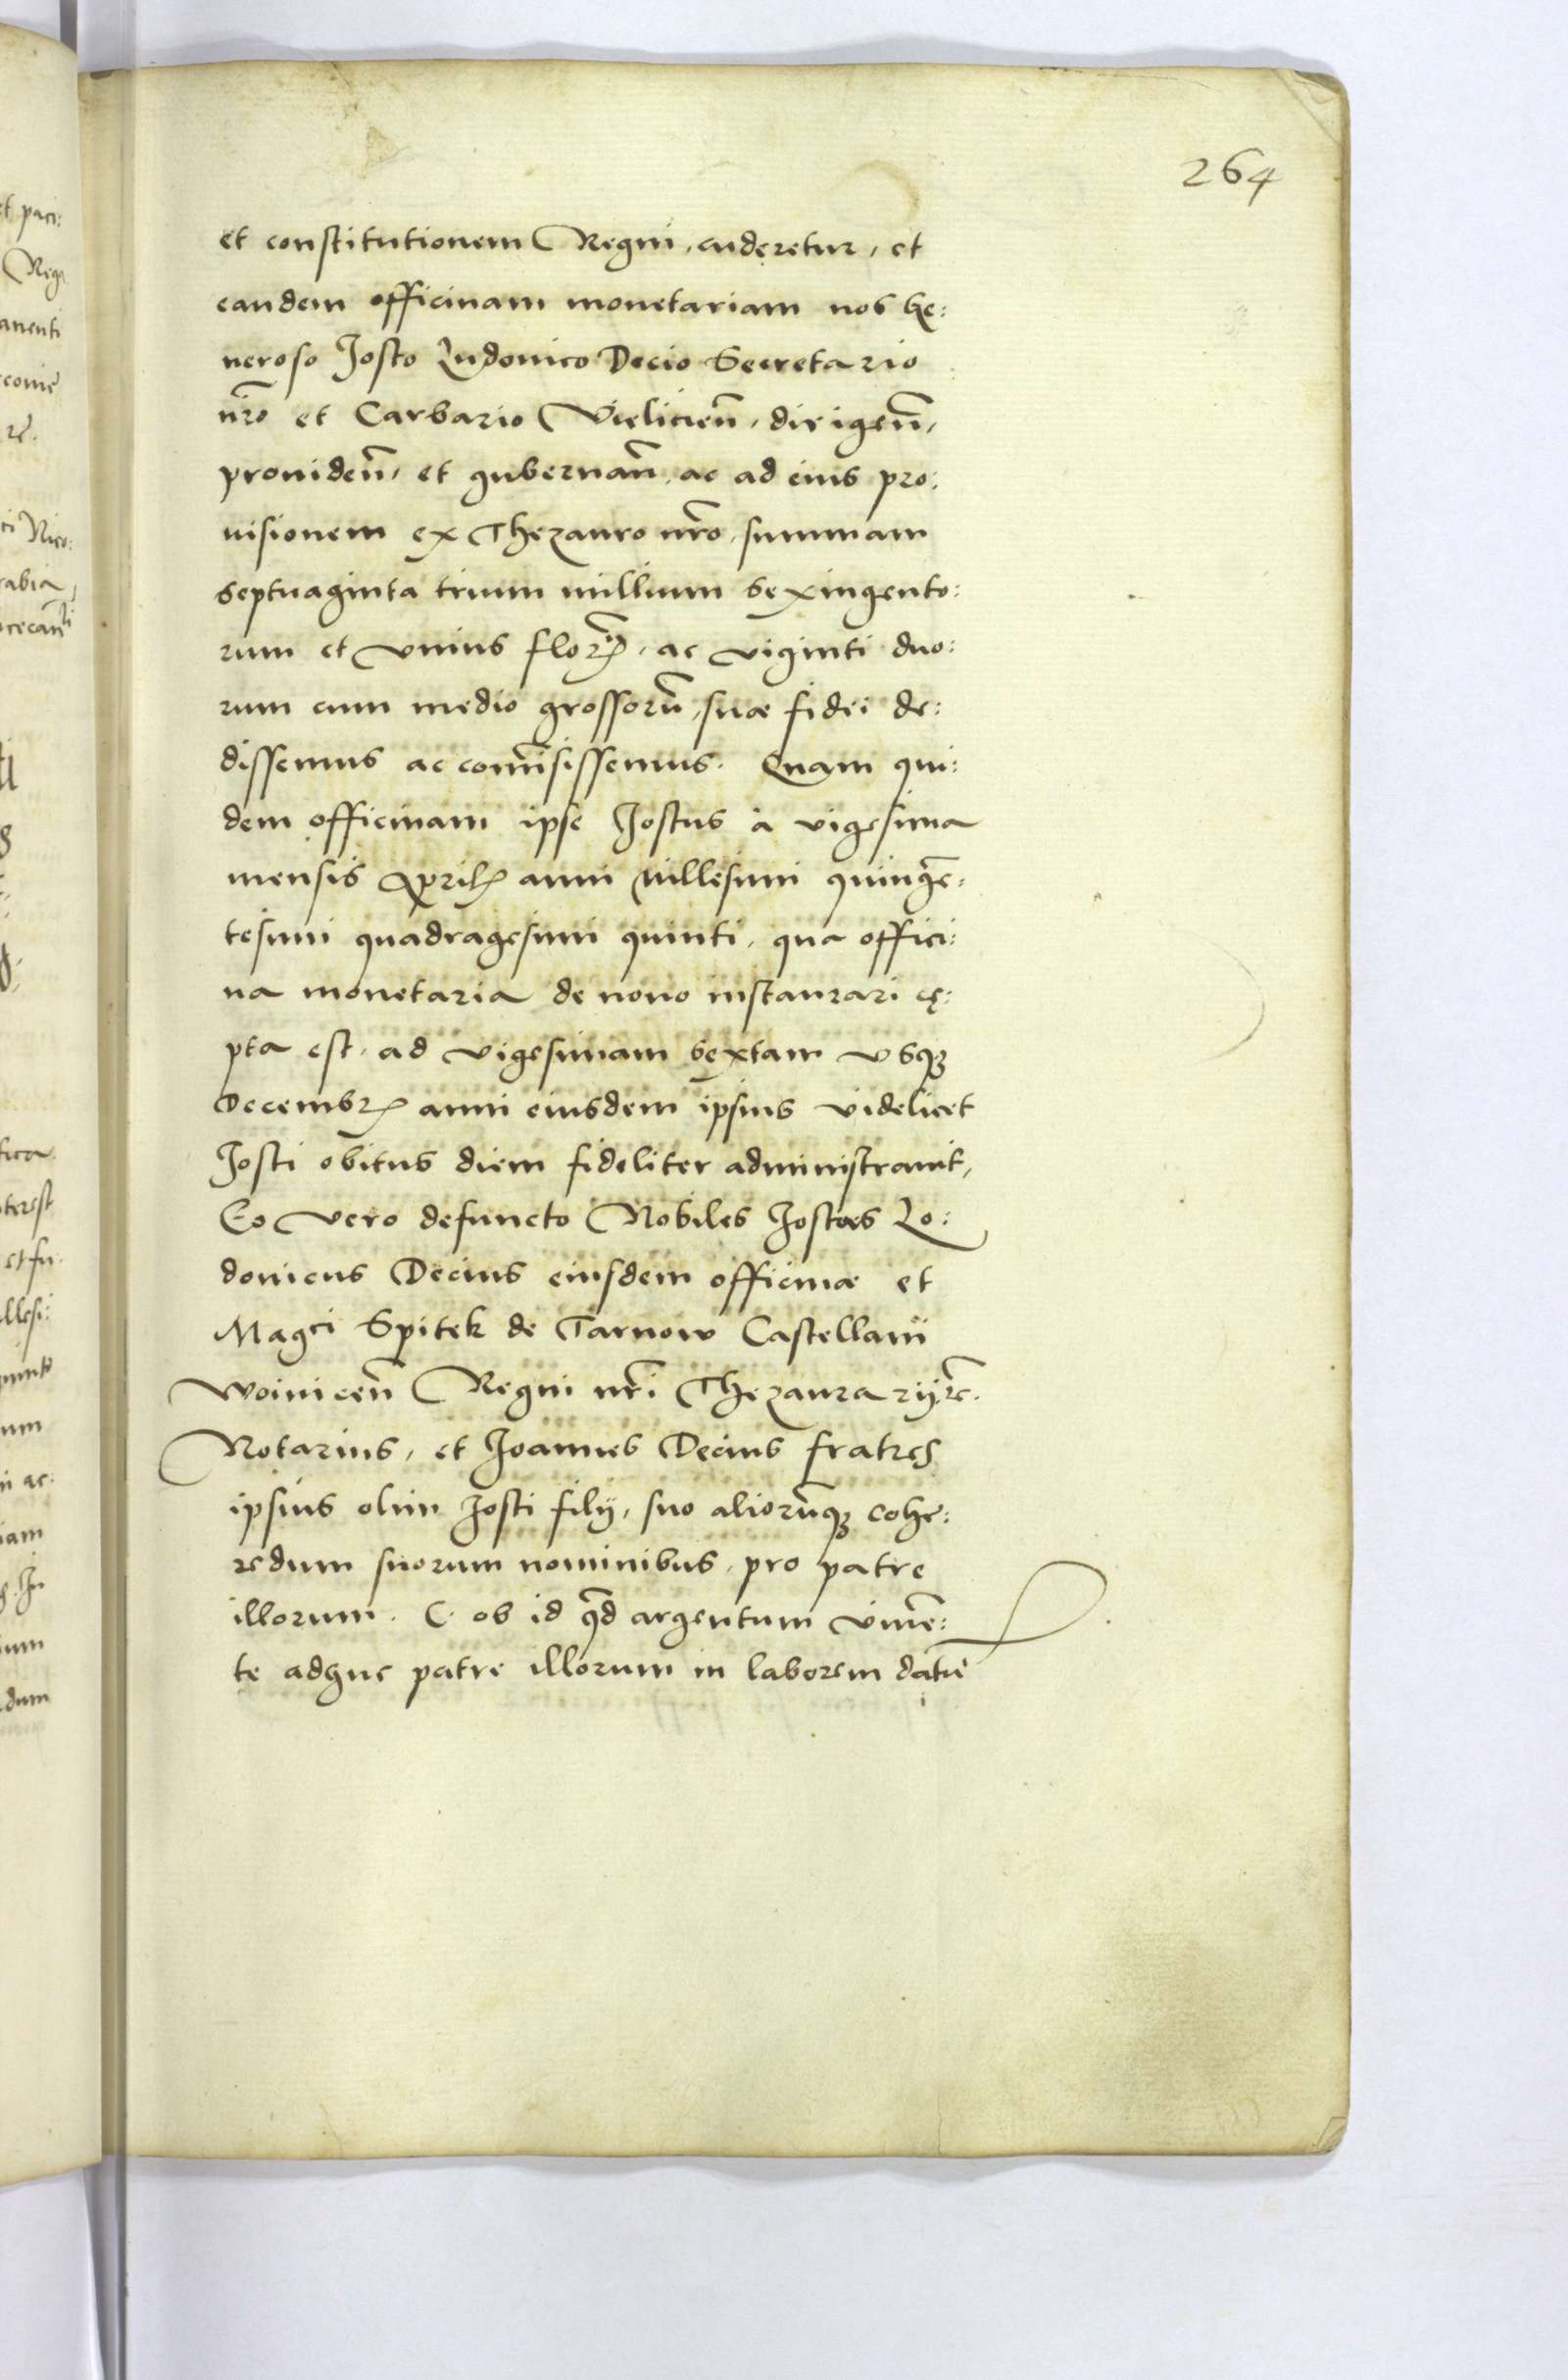 264
et constitutionem Regni, cuderetur, et
eandem officinam monetariam nos Ge:
neroso Josto Ludouico Decio Secretario
nr̃o et Carbario Vielicieñ, dirigeñ,
prouideñ, et gubernañ, ac ad eius pro:
uisionem ex Thezauro nr̃o, summam
septuaginta trium millium sexingento:
rum et vnius floř, ac viginti duo:
rum cum medio grossorũ, suæ fidei de:
dissemus ac com̃isissemus. Quam qui:
dem officinam ipse Jostus à vigesima
mensis April anni Millesimi quingẽ:
tesimi quadragesimi quinti, qua offici:
na monetaria de nouo instaurari cę:
pta est, ad vigesimam sextam vsqꝫ
Decembr anni eiusdem ipsius videlicet
Josti obitus diem fideliter administrauit,
Eo vero defuncto Nobiles Jostus Lo:
douicus Decius eiusdem officinæ et
Magci Spitek de Tarnow Castellani
Woiniceñ Regni nr̃i Thezaurarij rc̃.
Notarius, et Joannes Decius fratres
ipsius olim Josti filij, suo aliorũqꝫ cohe:
redum suorum nominibus, pro patre
illorum. C. ob id qd̃ argentum viuẽ:
te adhuc patre illorum in laborem datũ
et paci:
Reg
anenti
ti Nico:
rabia,
terest
et fu
llesi:
uinto
num
ni ac:
iam
ium
dum